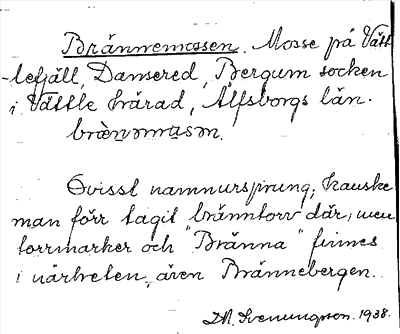 Brännemossen. Mosse på Vätt-
lefjäll, Dansered, Bergum socken
i Vättle härad, Älfsborgs län.
brænəmɯsən.
Ovisst namnursprung, kanske
man förr tagit bränntorv där, men
torrmarker och "Bränna" finnes
i närheten, även Brännebergen.
Svenungson. 1938.